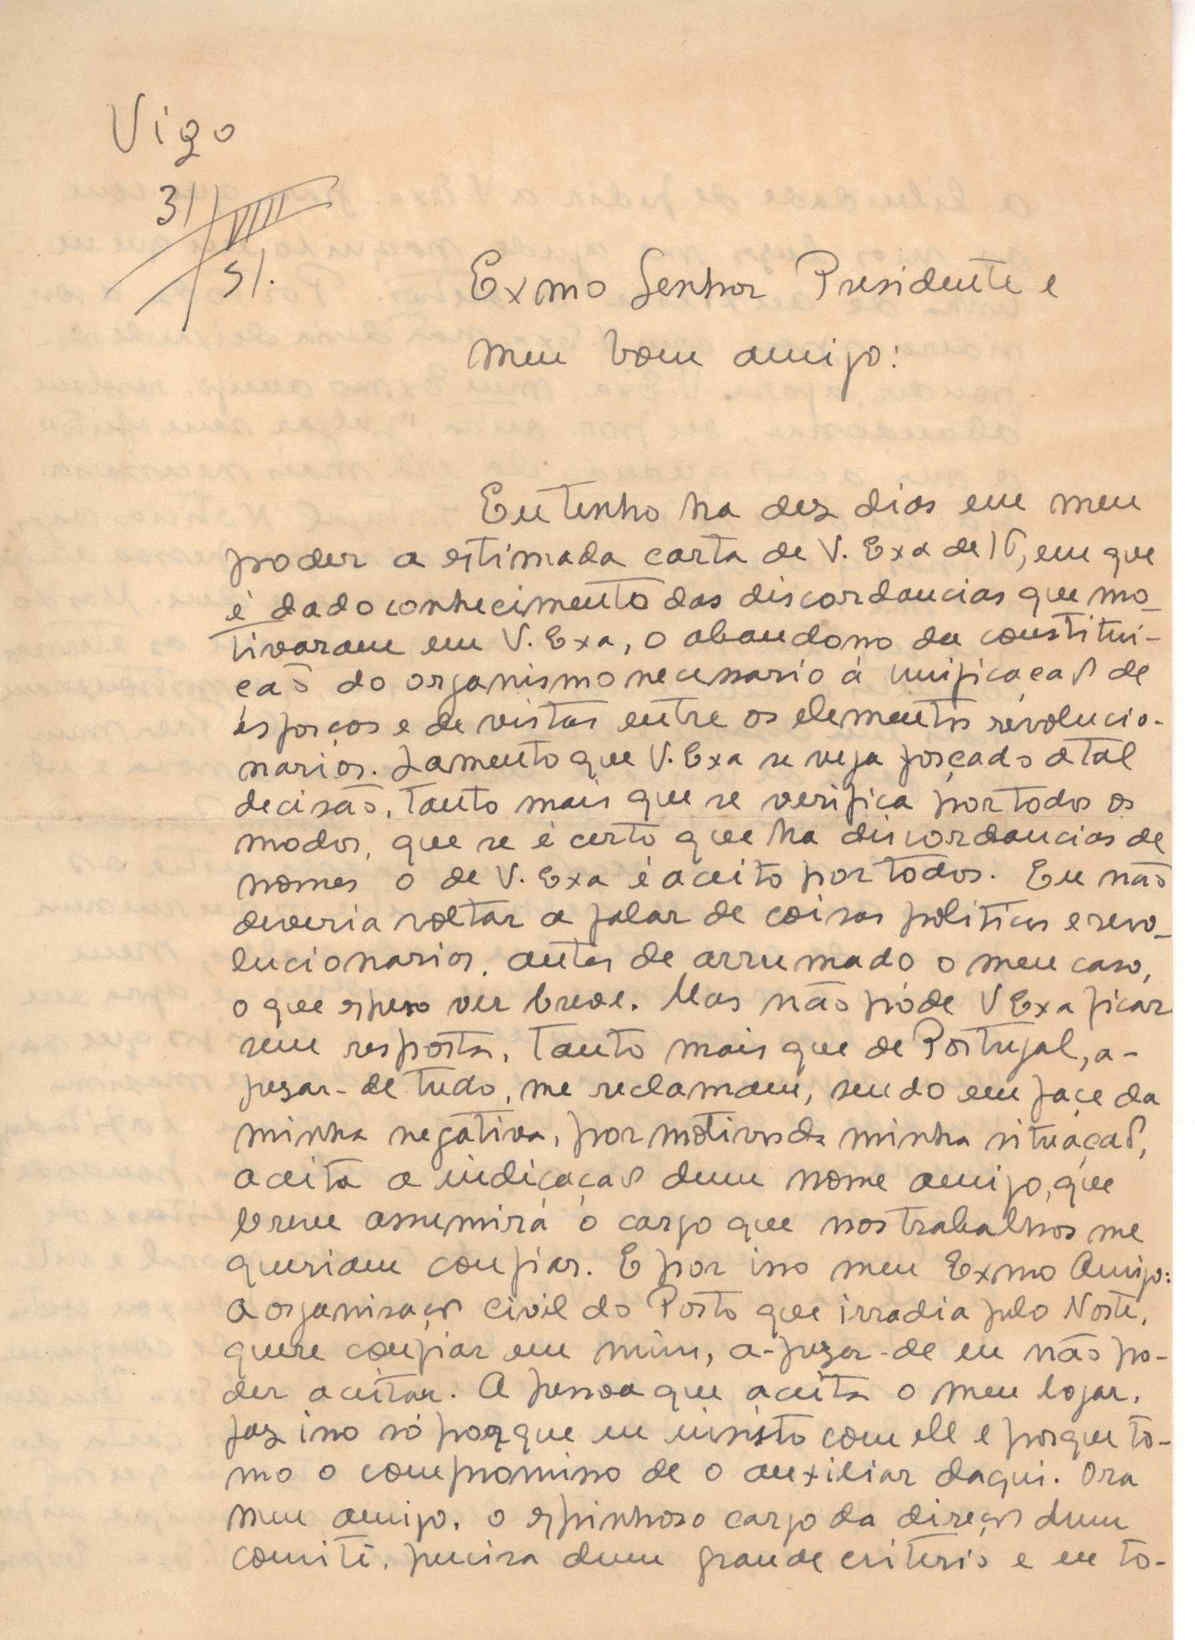 Vigo
31/VIII/
31.
Exmo Senhor Presidente e
meu bom amigo:
Eu tenho ha dez dias em meu
poder a estimada carta de V. Exa de 16, em que
é dado conhecimento das discordancias que mo-
tivaram em V. Exa, o abandono da constitui-
ção do organismo necessario á unificação de
esforços e de vistas entre os elementos revolucio-
narios. Lamento que V. Exa se veja forçado a tal
decisão, tanto mais que se verifica por todos os
modos, que se é certo que ha discordancias de
nomes o de V. Exa é aceito por todos. Eu não
deveria voltar a falar de coisas politicas e revo-
lucionarios, antes de arrumado o meu caso,
o que espero ver breve. Mas não póde V Exa ficar
sem resposta, tanto mais que de Portugal, a-
pezar-de tudo, me reclamam, sendo em face da
minha negativa, por motivos da minha situação,
aceita a indicação dum nome amigo, que
breve assumirá o cargo que nos trabalhos me
queriam confiar. E por isso meu Exmo Amigo:
A organisação civil do Porto que irradia pelo Norte,
quere confiar em mim, a-pezar-de eu não po-
der aceitar. A pessoa que aceita o meu logar,
faz isso só porque eu insisto com elle e porque to-
mo o compromisso de o auxiliar daqui. Ora
meu amigo, o espinhoso cargo da direção dum
comité, precisa dum grande criterio e eu to-